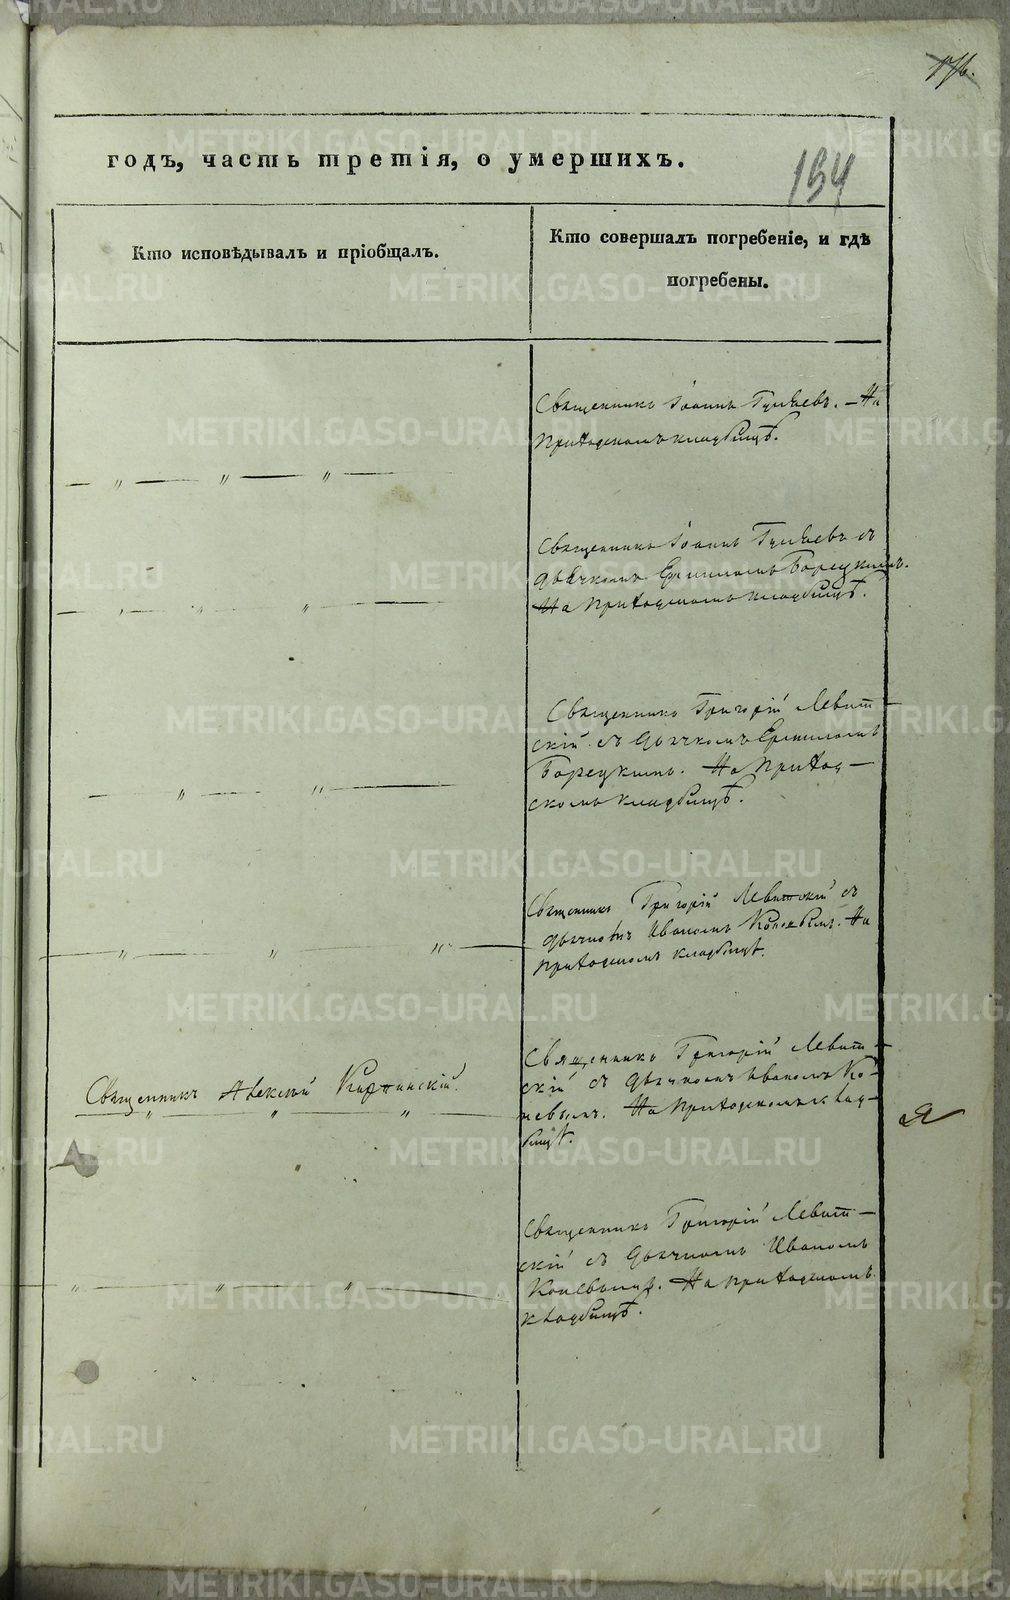 194
годъ, часть третія, о умершихъ.
Кто исповѣдывалъ и пріобщалъ.
Кто совершалъ погребеніе, и гдѣ
погребены.
Священникъ Іоаннъ Гуляевъ. — На
приходскомъ кладбищѣ.
— „ — „ — „ —
Священникъ Іоаннъ Гуляевъ съ
дьячкомъ Ермиломъ Борецкимъ.
На приходскомъ кладбищѣ.
Священникъ Григорій Левит-
скій съ дьячкомъ Ермиломъ
Борецкимъ. На приход-
скомъ кладбищѣ.
— „ — „ —
Священникъ Григорій Левитскій съ
дьячкомъ Иваномъ На
приходскомъ кладбищѣ.
— „ — „ — „ —
Священникъ Григорій Левит-
скій съ дьячкомъ Иваномъ Ко-
невымъ. На приходскомъ клад-
бищѣ.
Священникъ Алексѣй
„ „ „
Священникъ Григорій Левит-
скій съ дьячкомъ Иваномъ
Коневымъ. На приходскомъ
кладбищѣ.
„ — „ — „ —
METRIKI.GASO-URAL.RU